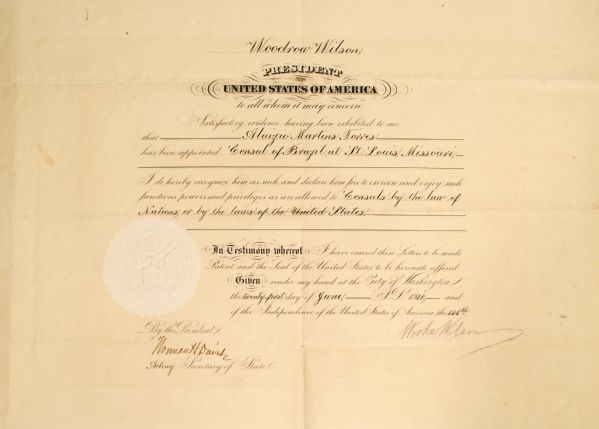 Woodrow Wilson,
PRESIDENT
OF THE
UNITED STATES OF AMERICA
to all whom it may concern.
Satisfactory evidence having been exhibited to me
that Aluizio Martins Torres
has been appointed Consul of Brazil at St. Louis, Missouri,
I do hereby recognize him as such, and declare him free to exercise and enjoy such
functions, powers and privileges as are allowed to Consuls by the law of
Nations, or by the laws of the United States.
In Testimony whereof, I have caused these Letters to be made
Patent, and the Seal of the United States to be hereunto affixed.
Given under my hand at the City of Washington
the twenty first day of June, A.D. 1920, and
of the Independence of the United States of America, the 144th.
By the President,
Woodrow Wilson
Norman H Davis
Acting Secretary of State.